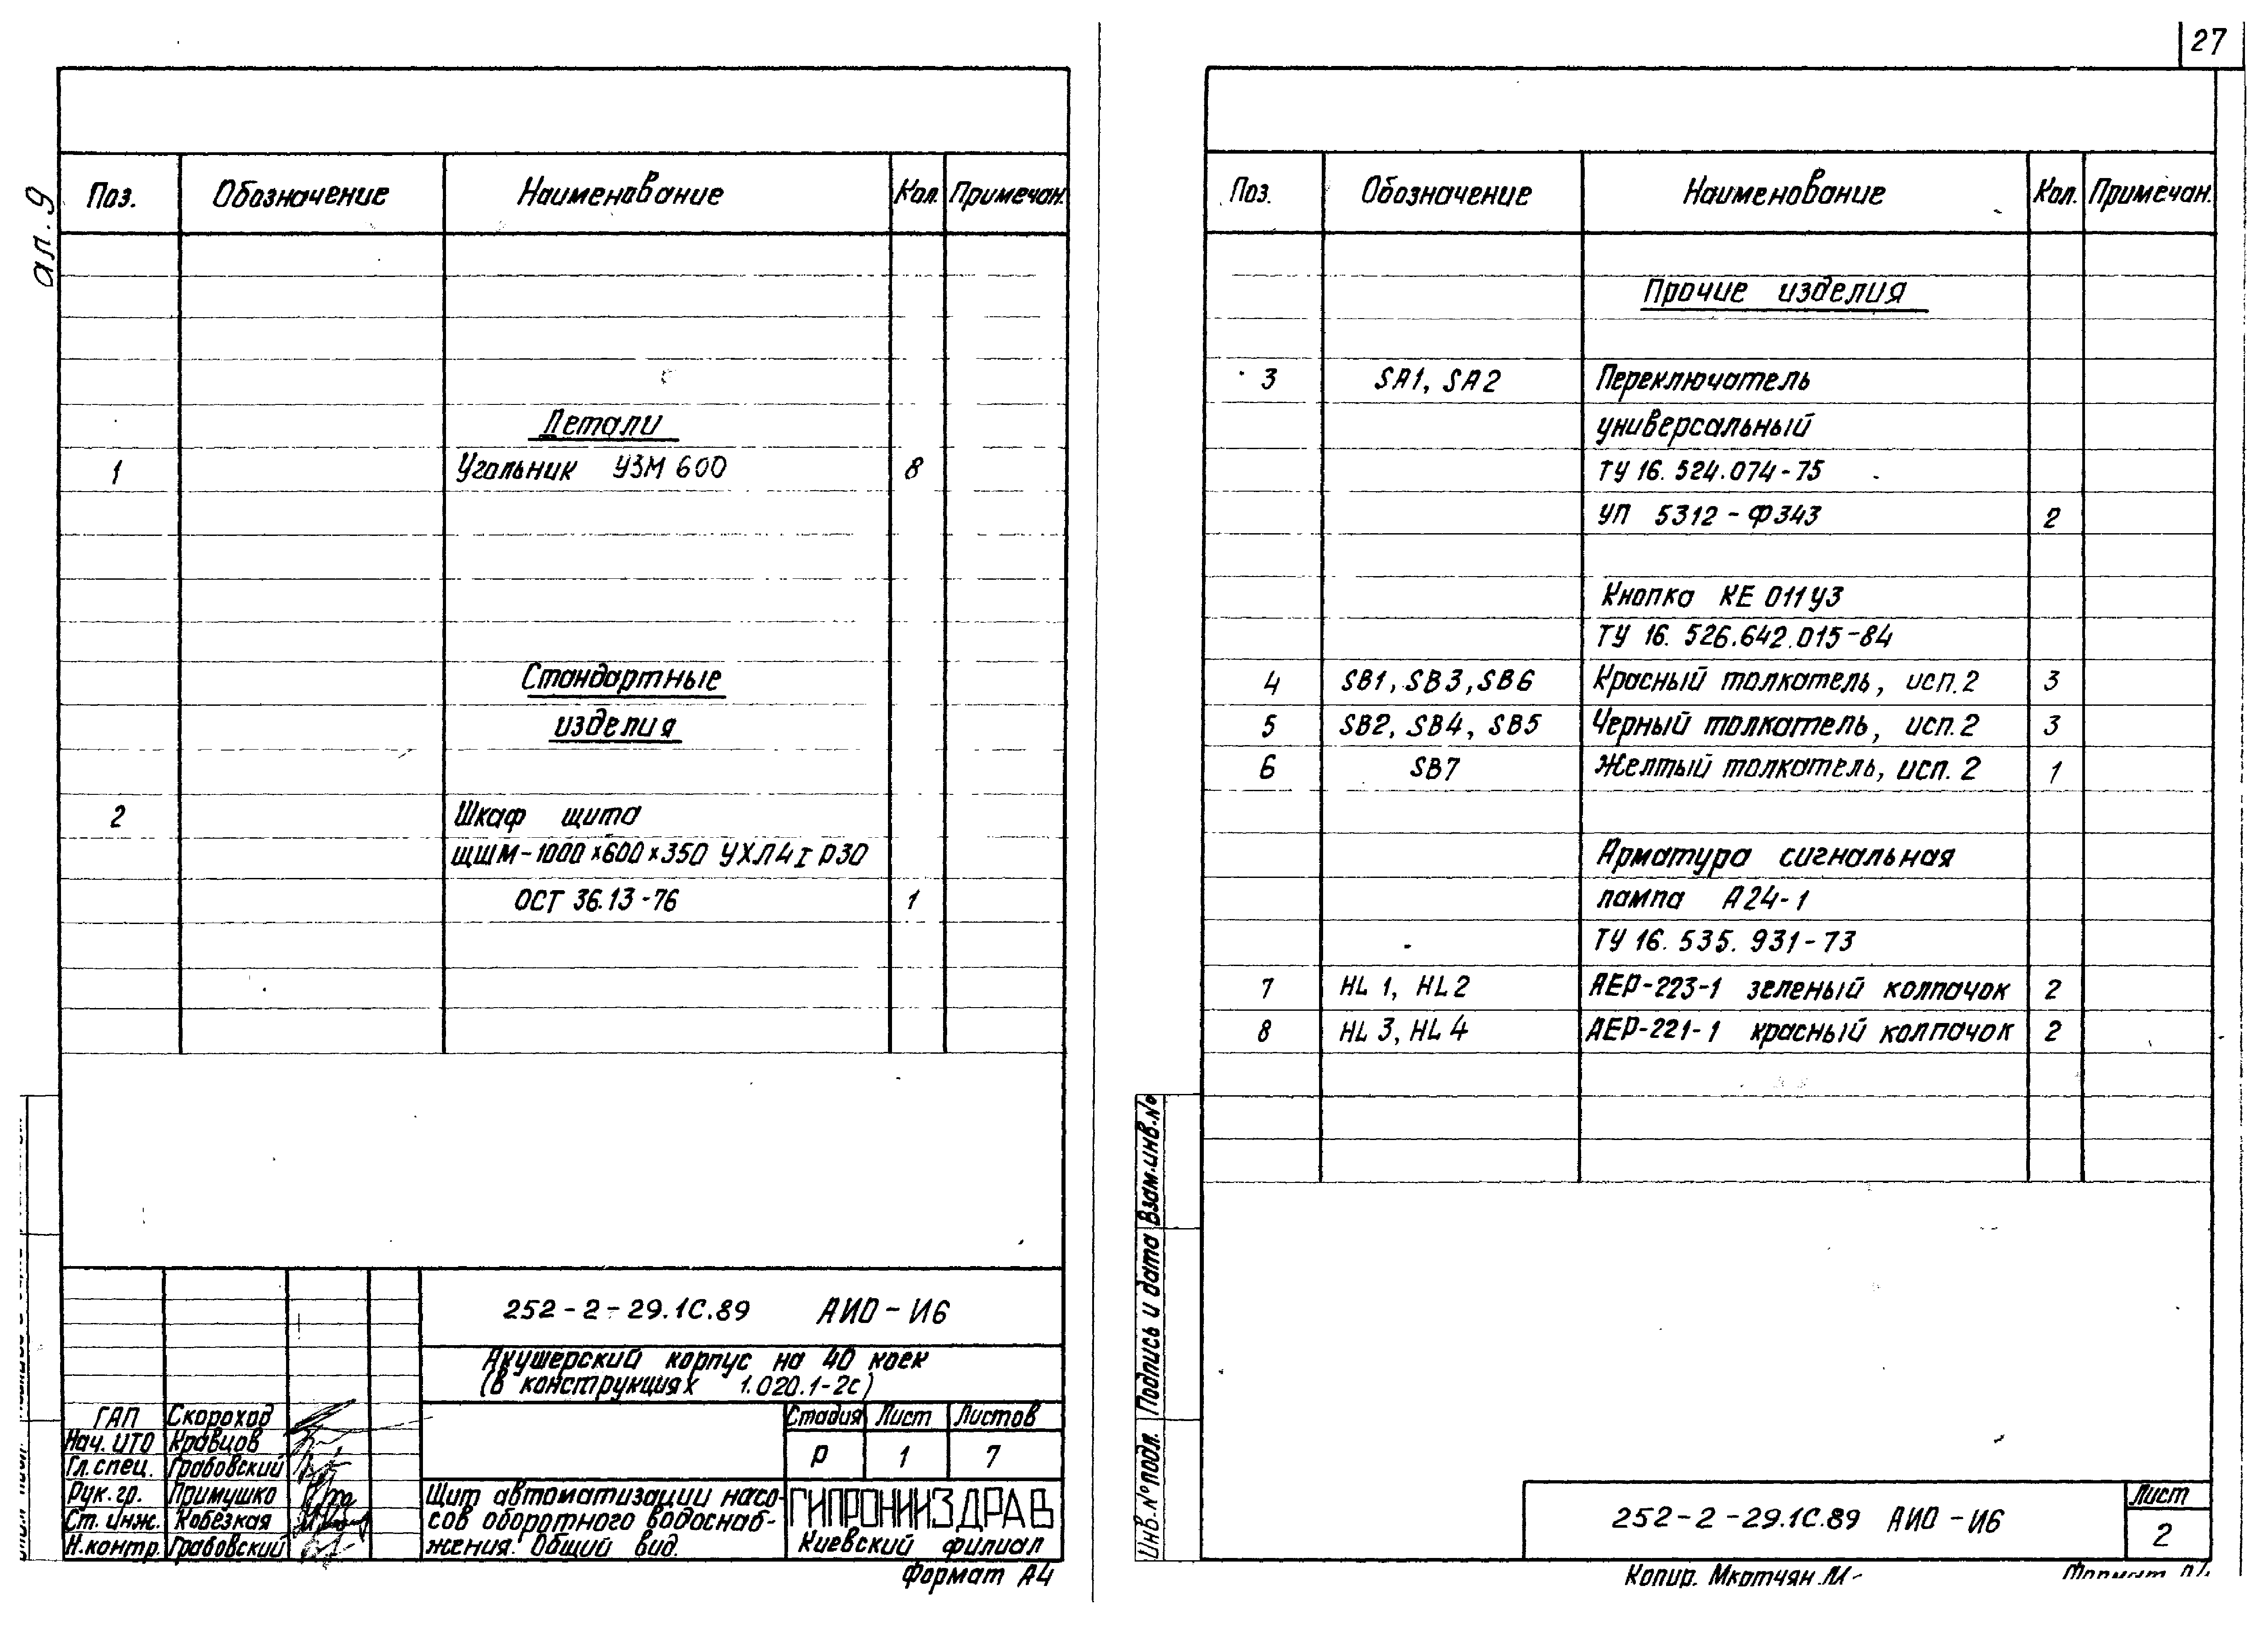 27
ал. 9
Поз. Обозначение Наименование Кол. Примечан.
Детали
1 Угольник УЗМ 600 8
Стандартные
изделия
2 Шкаф щита
ЩШМ-1000×600×350 УХЛ4 I Р30
ОСТ 36.13-76 1
252-2-29.1С.89 АИО-И6
Акушерский корпус на 40 коек
(в конструкциях 1.020.1-2с)
Стадия Лист Листов
Р 1 7
ГАП Скороход
Нач. ИТО Кравцов
Гл. спец. Грабовский
Рук. гр. Примушко
Ст. инж. Кобезкая
Н.контр. Грабовский
Щит автоматизации насо-
сов оборотного водоснаб-
жения. Общий вид.
ГИПРОНИИЗДРАВ
Киевский филиал
Формат А4
Поз. Обозначение Наименование Кол. Примечан.
Прочие изделия
3 SA1, SA2 Переключатель
универсальный
ТУ 16. 524.074-75
УП 5312-Ф343 2
Кнопка КЕ 011У3
ТУ 16. 526.642.015-84
4 SB1, SB3, SB6 Красный толкатель, исп. 2 3
5 SB2, SB4, SB5 Черный толкатель, исп. 2 3
6 SB7 Желтый толкатель, исп. 2 1
Арматура сигнальная
лампа А24-1
ТУ 16. 535. 931-73
7 HL 1, HL 2 АЕР-223-1 зеленый колпачок 2
8 HL 3, HL 4 АЕР-221-1 красный колпачок 2
Инв.№ подл. Подпись и дата Взам.инв.№
252-2-29.1С.89 АИО-И6
Лист
2
Копир. Мкртчян М
Формат А4